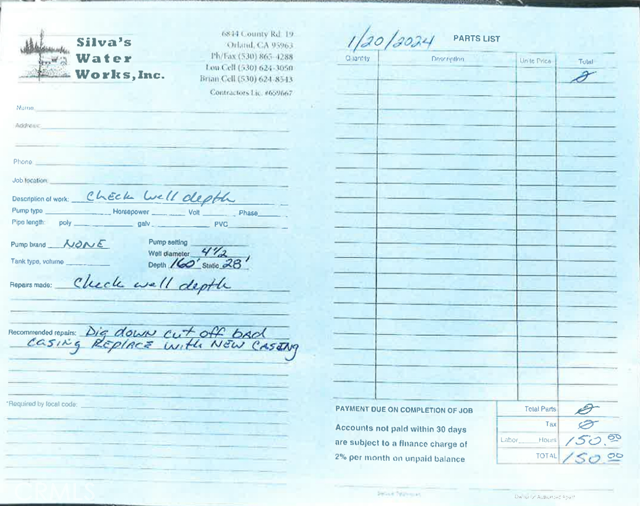 Silva's
Water
Works, Inc.
6844 County Rd. 19
Orland, CA 95963
Ph/Fax (530) 865-4288
Lou Cell (530) 624-3050
Brian Cell (530) 624-8543
Contractors Lic. #659667
Name
Address
Phone
Job location
Description of work: Check well depth
Pump type Horsepower Volt Phase
Pipe length: poly galv PVC
Pump brand NONE Pump setting
Well diameter 4 1/2
Tank type, volume Depth 160' Static 28'
Repairs made: Check well depth
Recommended repairs: Dig down cut off bad
casing Replace with New Casing
*Required by local code:
1/20/2024 PARTS LIST
Quantity Description Unite Price Total
Ø
PAYMENT DUE ON COMPLETION OF JOB
Accounts not paid within 30 days
are subject to a finance charge of
2% per month on unpaid balance
Total Parts Ø
Tax Ø
Labor Hours 150.00
TOTAL 150.00